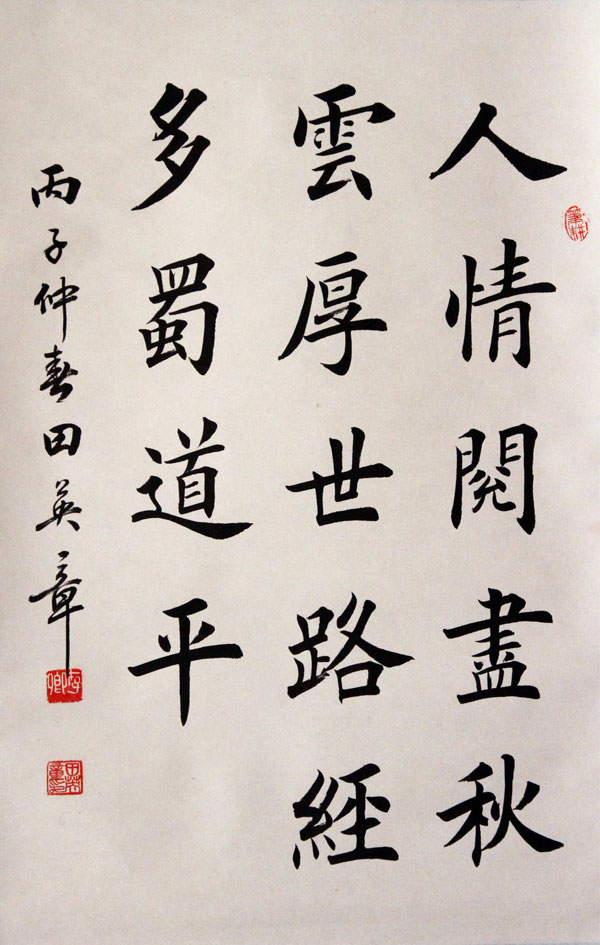 人情閱盡秋
雲厚世路經
多蜀道平
丙子仲春田英章